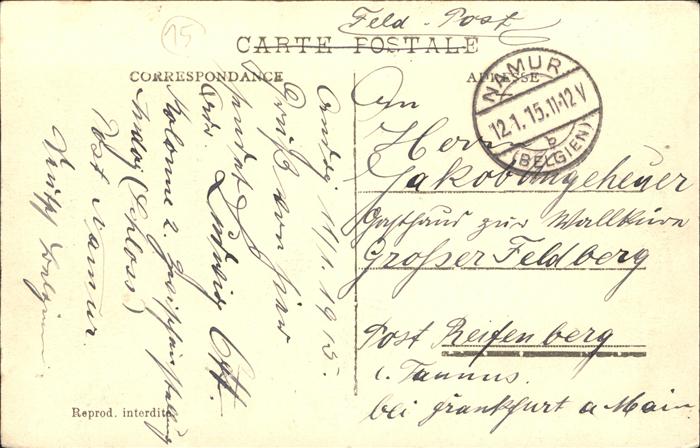 15
Feld-Post
CARTE POSTALE
CORRESPONDANCE
ADRESSE
NAMUR
12.1.15.11-12V
b
(BELGIEN)
An
Herrn
Jakob Ungeheuer
Gasthaus zur Walküre
Großer Feldberg
Post Reifenberg
i. Taunus.
bei Frankfurt a Main
11/1. 1915.
Gruß von hier
sendet
Ludwig Ott.
Kolonne 2.
(Schloss)
Post Namur
Reprod. interdite